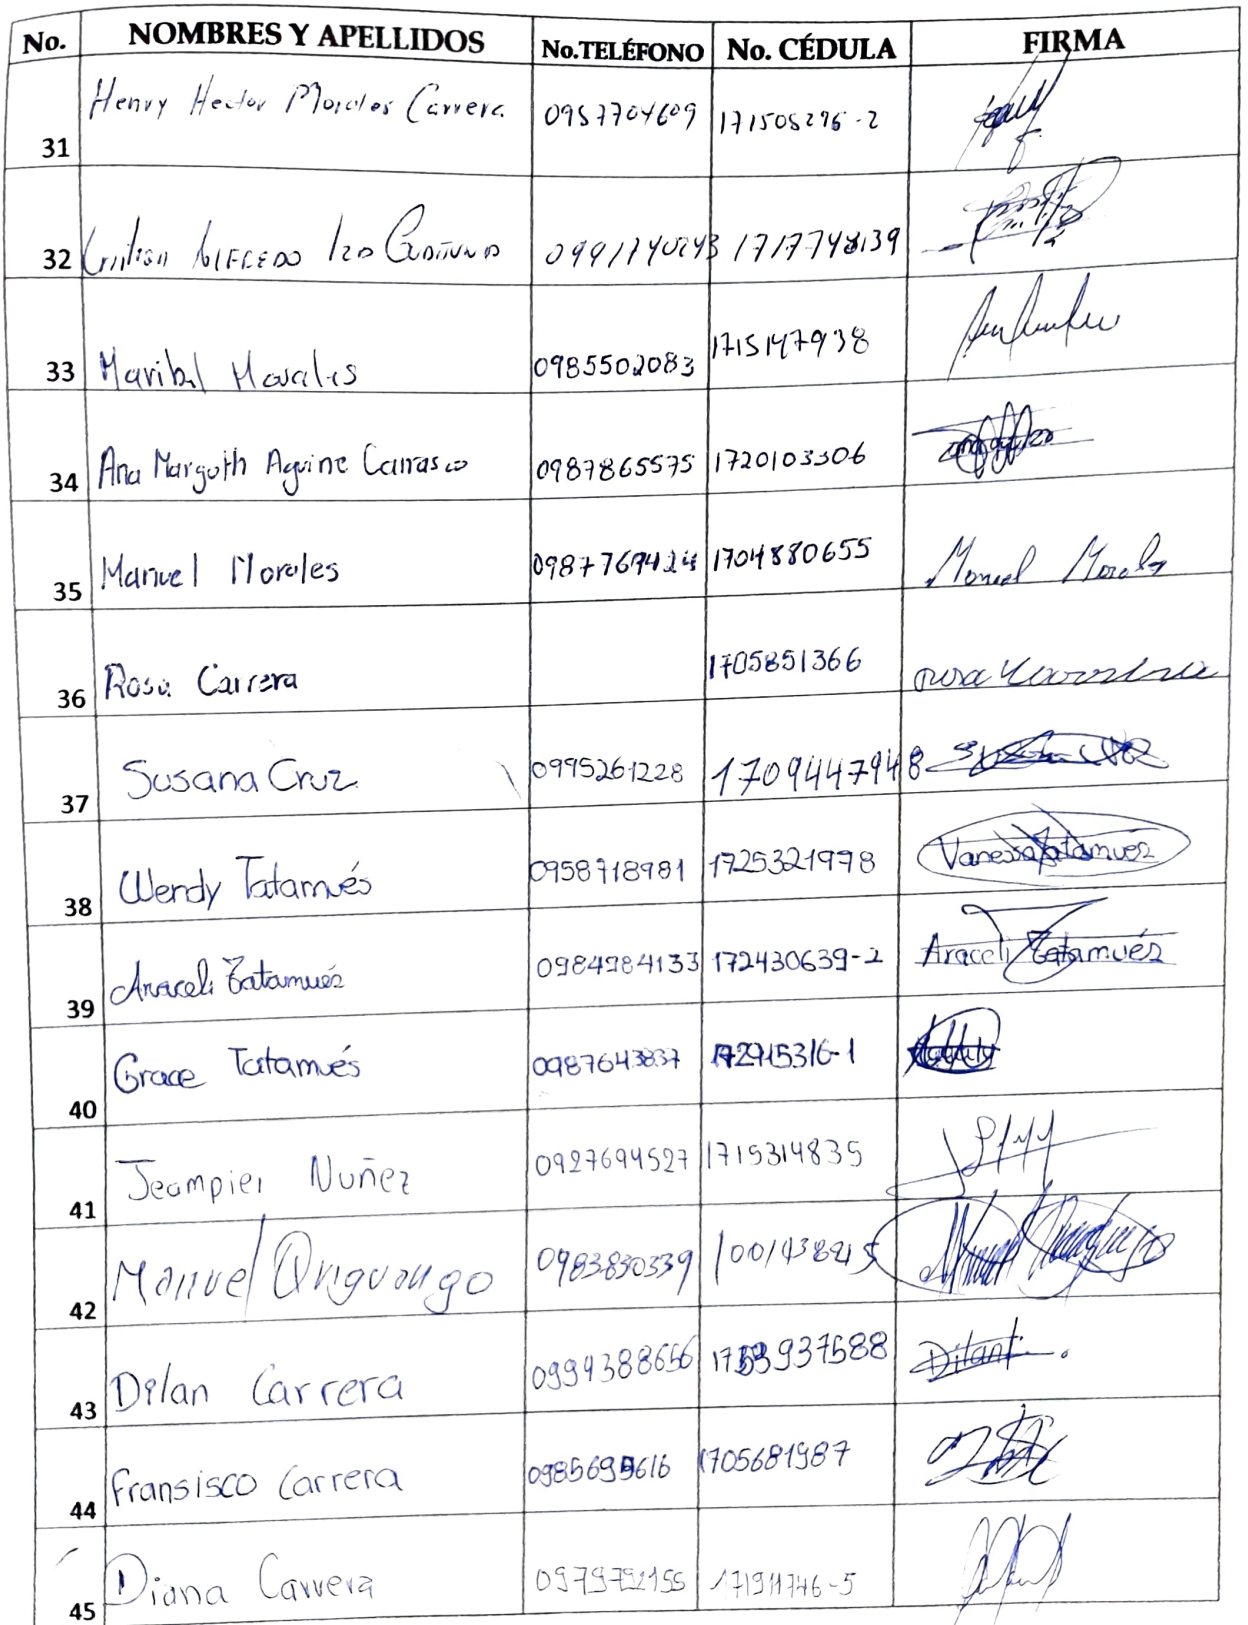 No. NOMBRES Y APELLIDOS No.TELÉFONO No. CÉDULA FIRMA
31 Henry Hector Morales Carrera 0957704609 171505295-2
32 Cristian ALFREDO 0991140243 1717748139
33 Maribel Morales 0985502083 1715147938
34 Ana Margoth Aguirre Carrasco 0987865575 1720103306
35 Manuel Morales 0987769424 1704880655 Manuel Morales
36 Rosa Carrera 1705851366 rosa
37 Susana Cruz 0995261228 1709447948
38 Wendy Tatamués 0958718981 1725321978 Vanessa Tatamués
39 Araceli Tatamués 0984984133 172430639-2 Araceli Tatamués
40 Grace Tatamués 0987643837 172915316-1
41 Jeampier Nuñez 0927694527 1715314835
42 Manuel Quiguango 0983830339 1001438215
43 Dilan Carrera 0994388656 1753937588 Dilan
44 Fransisco Carrera 0985695616 1705681987
45 Diana Carrera 0979792155 171911746-5